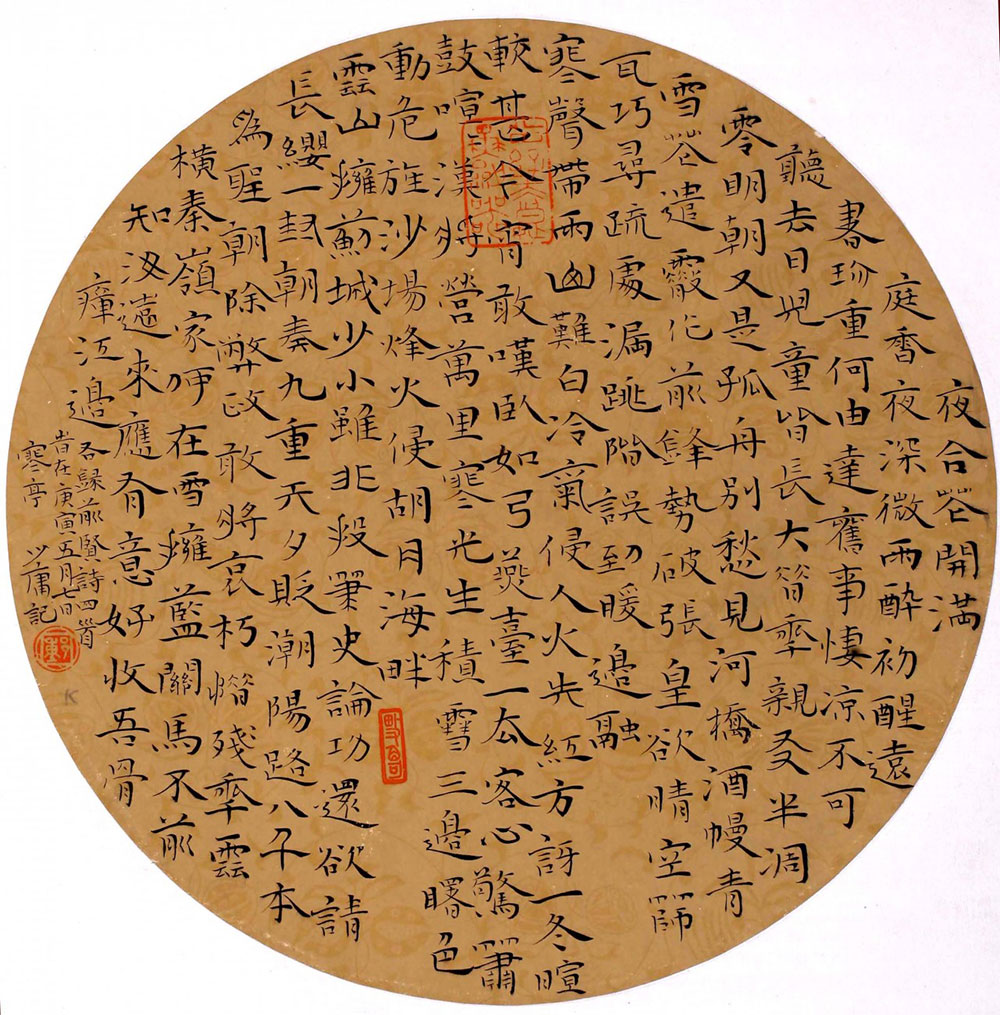 夜合花開滿
庭香夜深微雨醉初醒遠
書珍重何由達舊事悽凉不可
聽去日兒童皆長大昔年親友半凋
零明朝又是孤舟別愁見河橋酒幔青
雪花遣霰作前鋒勢破張皇欲晴空篩
瓦巧尋疏處漏跳階誤到暖邊融
寒聲帶雨山難白冷氣侵人火失紅方訝一冬暄
較甚今宵敢嘆臥如弓燕臺一去客心驚簫
鼓喧漢將營萬里寒光生積雪三邊曙色
動危旌沙場烽火侵胡月海畔
雲山擁薊城少小雖非投筆史論功還欲請
長纓一封朝奏九重天夕貶潮陽路八千本
為聖朝除弊政敢將衰朽惜殘年雲
橫秦嶺家何在雪擁藍關馬不前
知汝遠來應有意好收吾骨
瘴江邊
右錄前賢詩四首
旹在庚寅五月七日
寒亭 以庸記